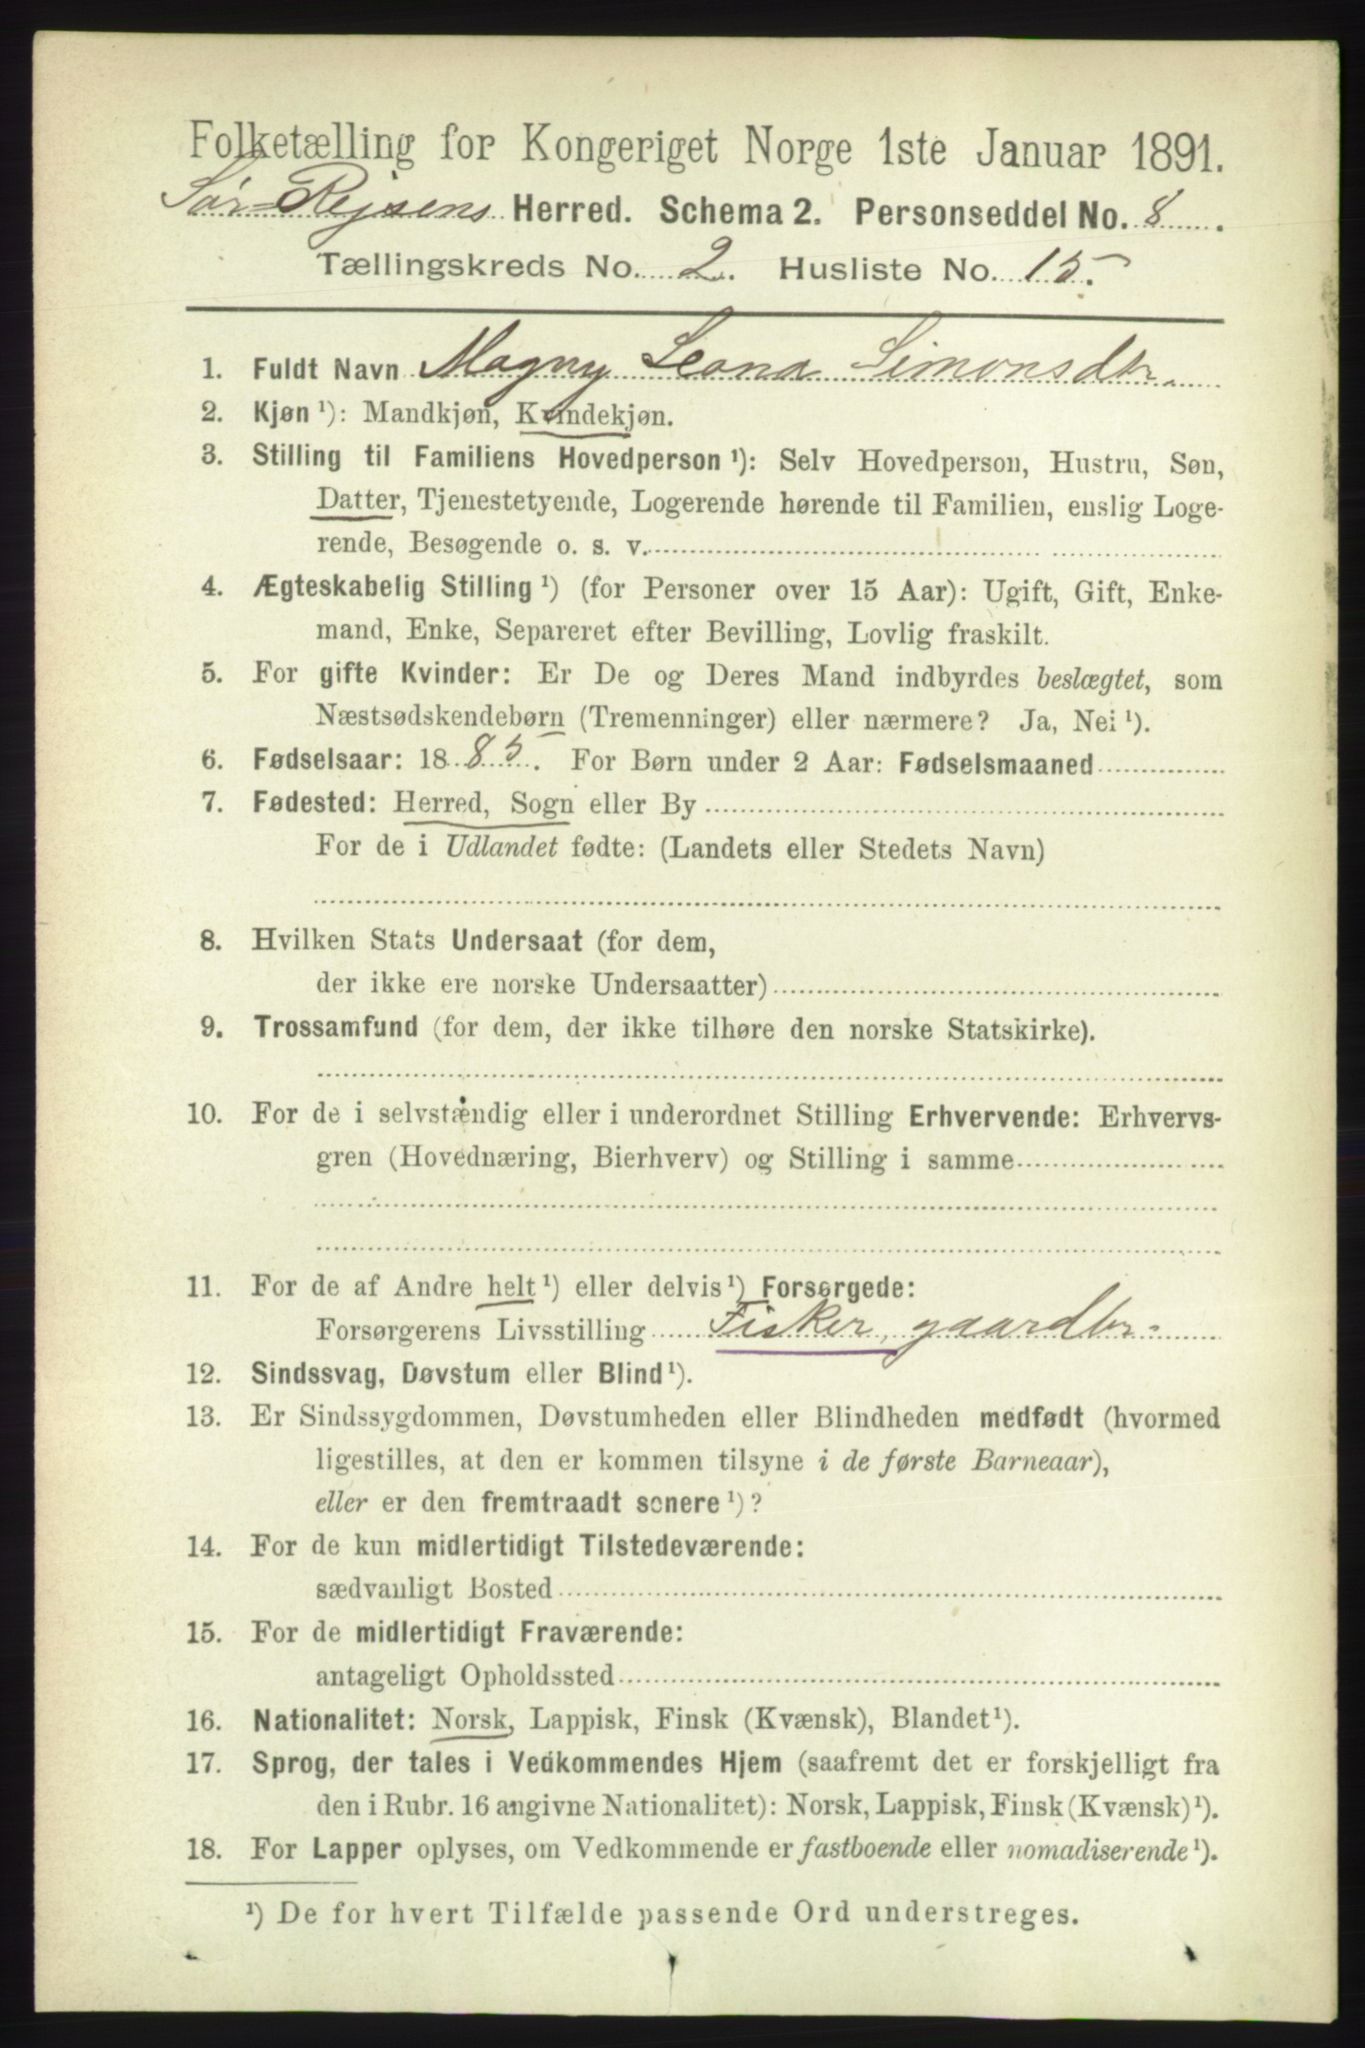 Folketælling for Kongeriget Norge 1ste Januar 1891.
Sør-Rejsens Herred. Schema 2. Personseddel No. 8.
Tællingskreds No. 2. Husliste No. 15.
1. Fuldt Navn Magny Leana Simonsdtr.
2. Kjøn ¹): Mandkjøn, Kvindekjøn.
3. Stilling til Familiens Hovedperson ¹): Selv Hovedperson, Hustru, Søn,
Datter, Tjenestetyende, Logerende hørende til Familien, enslig Loge-
rende, Besøgende o. s. v.
4. Ægteskabelig Stilling ¹) (for Personer over 15 Aar): Ugift, Gift, Enke-
mand, Enke, Separeret efter Bevilling, Lovlig fraskilt.
5. For gifte Kvinder: Er De og Deres Mand indbyrdes beslægtet, som
Næstsødskendebørn (Tremenninger) eller nærmere? Ja, Nei ¹).
6. Fødselsaar: 1885. For Børn under 2 Aar: Fødselsmaaned
7. Fødested: Herred, Sogn eller By
For de i Udlandet fødte: (Landets eller Stedets Navn)
8. Hvilken Stats Undersaat (for dem,
der ikke ere norske Undersaatter)
9. Trossamfund (for dem, der ikke tilhøre den norske Statskirke).
10. For de i selvstændig eller i underordnet Stilling Erhvervende: Erhvervs-
gren (Hovednæring, Bierhverv) og Stilling i samme
11. For de af Andre helt ¹) eller delvis ¹) Forsørgede:
Forsørgerens Livsstilling Fisker, gaardbr.
12. Sindssvag, Døvstum eller Blind ¹).
13. Er Sindssygdommen, Døvstumheden eller Blindheden medfødt (hvormed
ligestilles, at den er kommen tilsyne i de første Barneaar),
eller er den fremtraadt senere ¹)?
14. For de kun midlertidigt Tilstedeværende:
sædvanligt Bosted
15. For de midlertidigt Fraværende:
antageligt Opholdssted
16. Nationalitet: Norsk, Lappisk, Finsk (Kvænsk), Blandet ¹).
17. Sprog, der tales i Vedkommendes Hjem (saafremt det er forskjelligt fra
den i Rubr. 16 angivne Nationalitet): Norsk, Lappisk, Finsk (Kvænsk) ¹).
18. For Lapper oplyses, om Vedkommende er fastboende eller nomadiserende ¹).
¹) De for hvert Tilfælde passende Ord understreges.